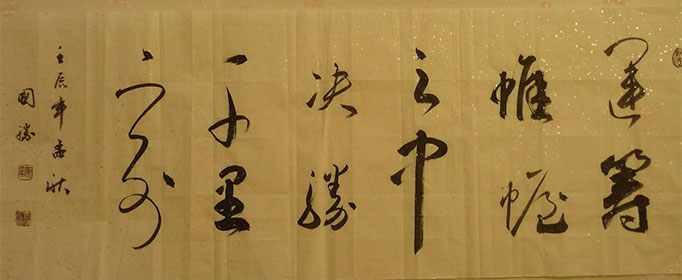 運籌
帷幄
之中
决勝
千里
之外
壬辰年
國勝